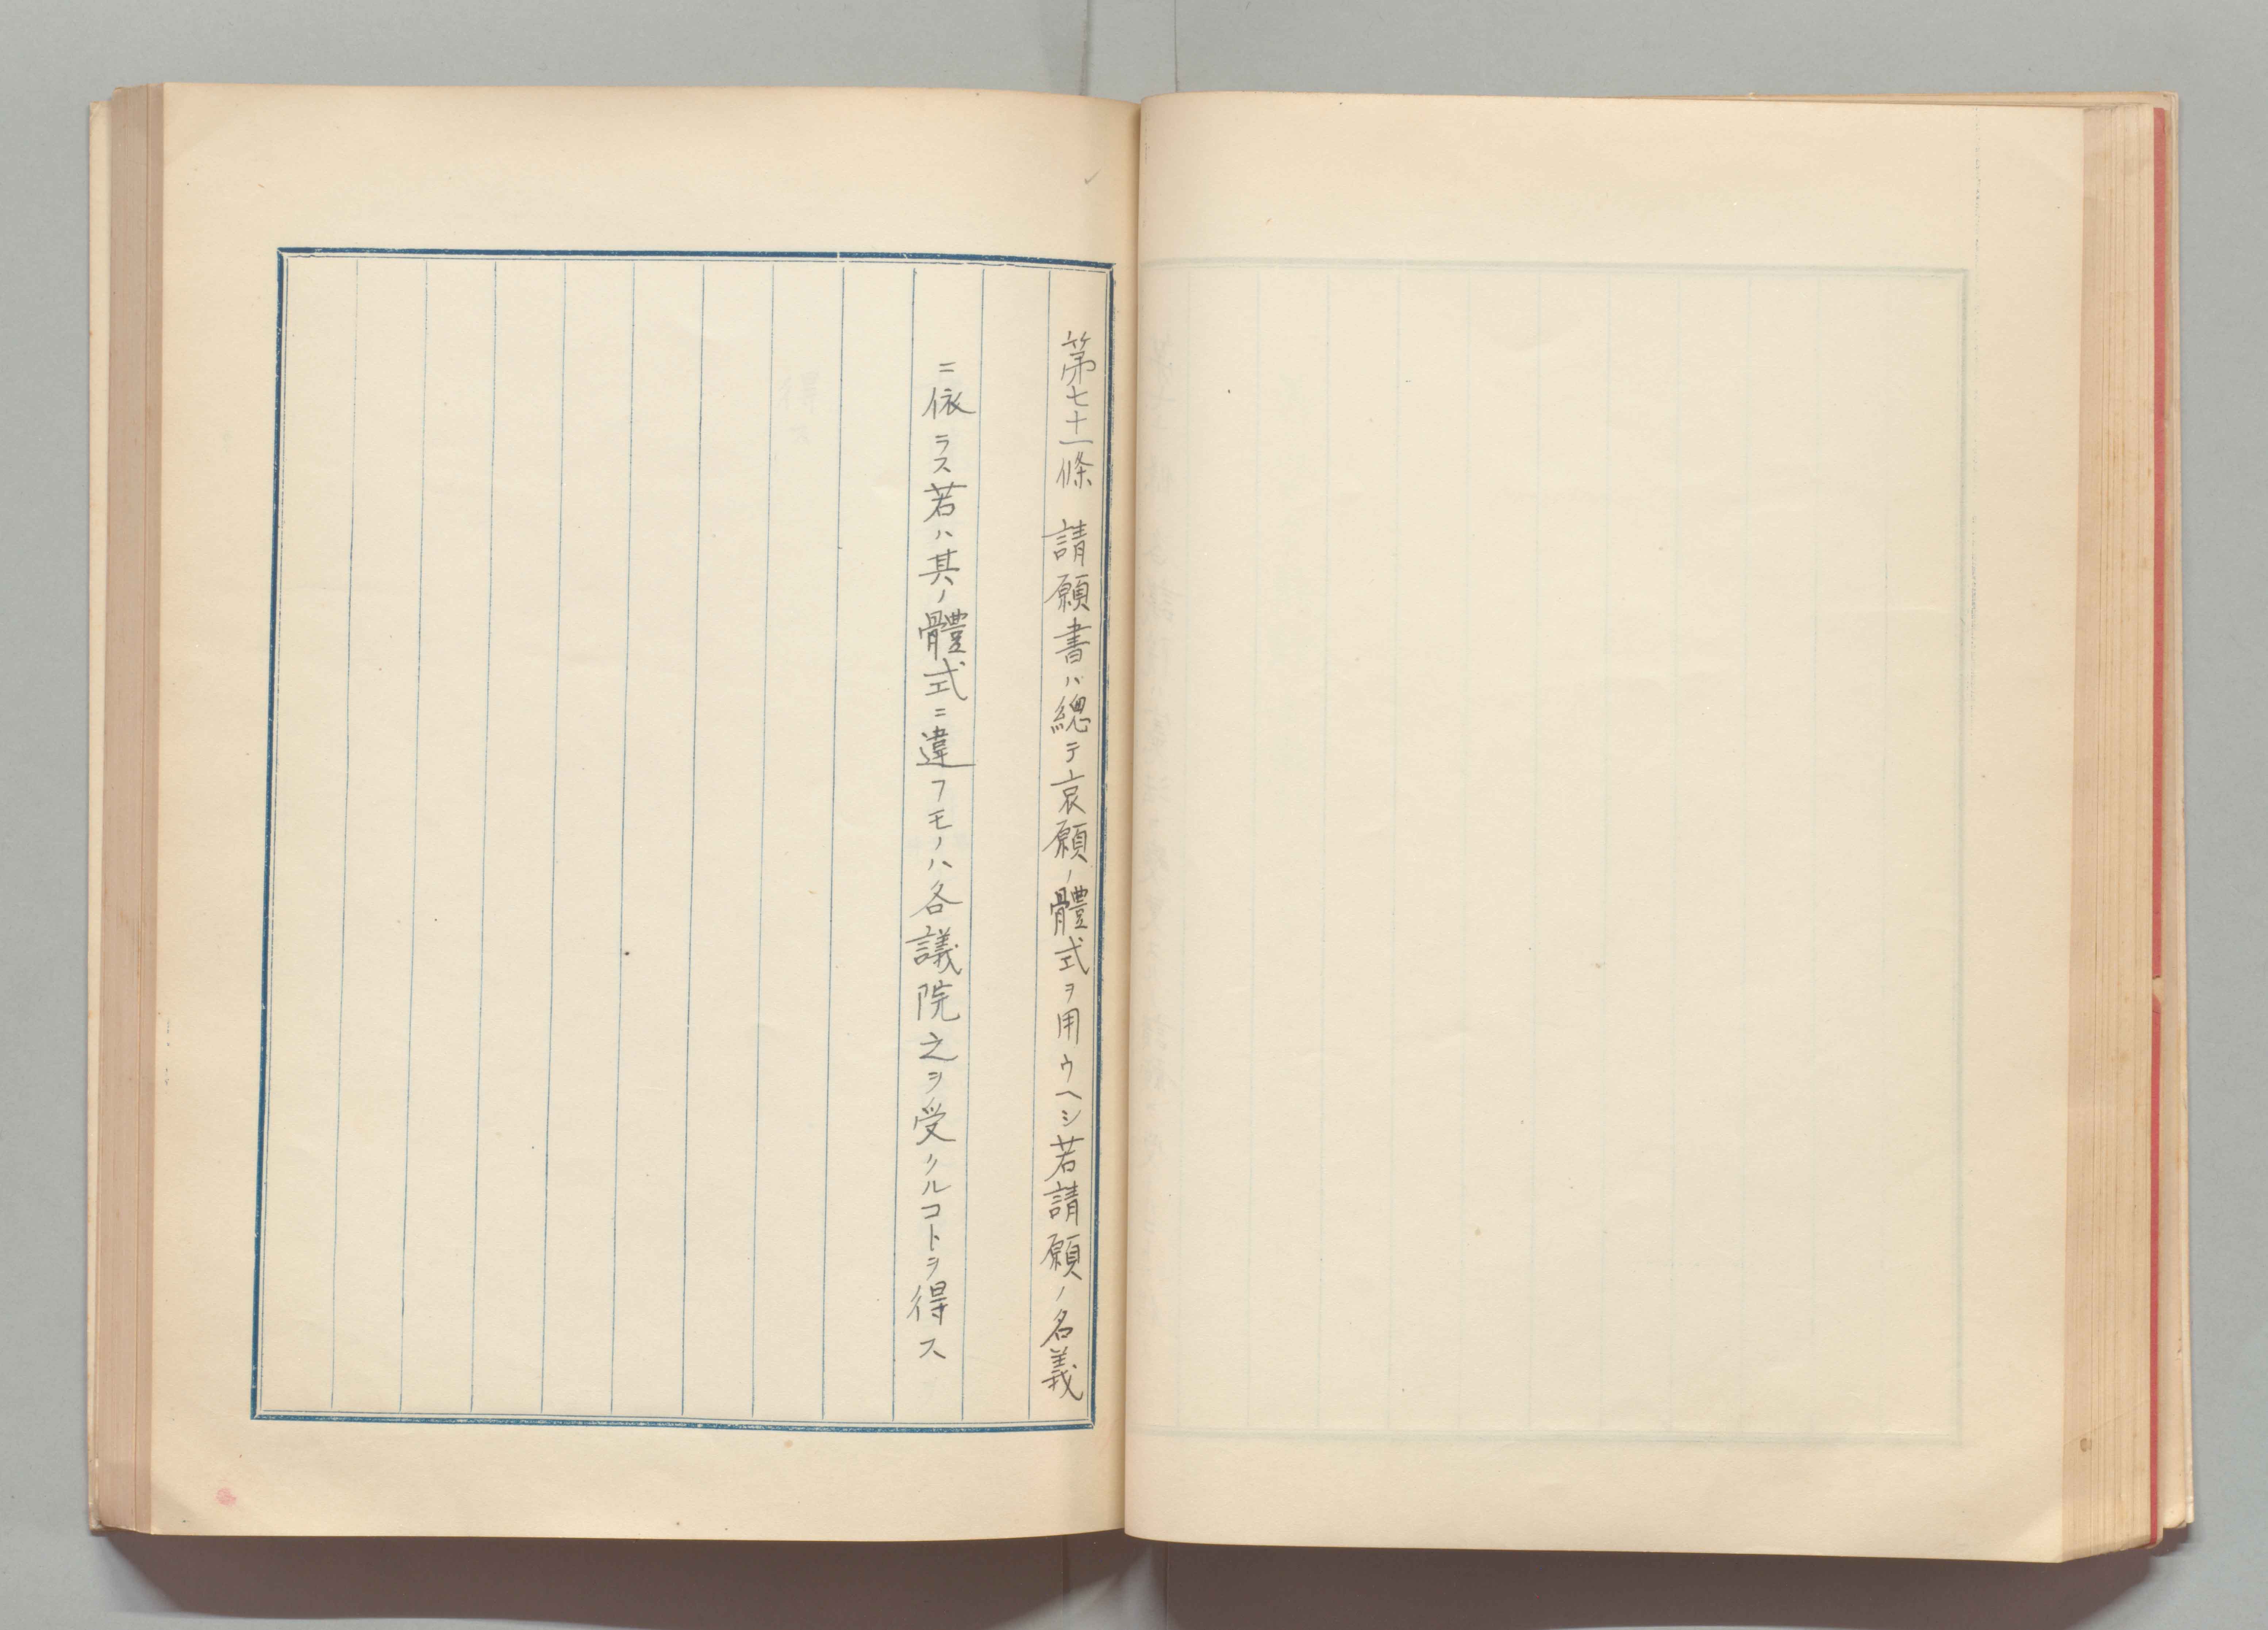 第七十一條　請願書ハ總テ哀願ノ體式ヲ用ウヘシ若請願ノ名義
ニ依ラス若ハ其ノ體式ニ違フモノハ各議院之ヲ受クルコトヲ得ス